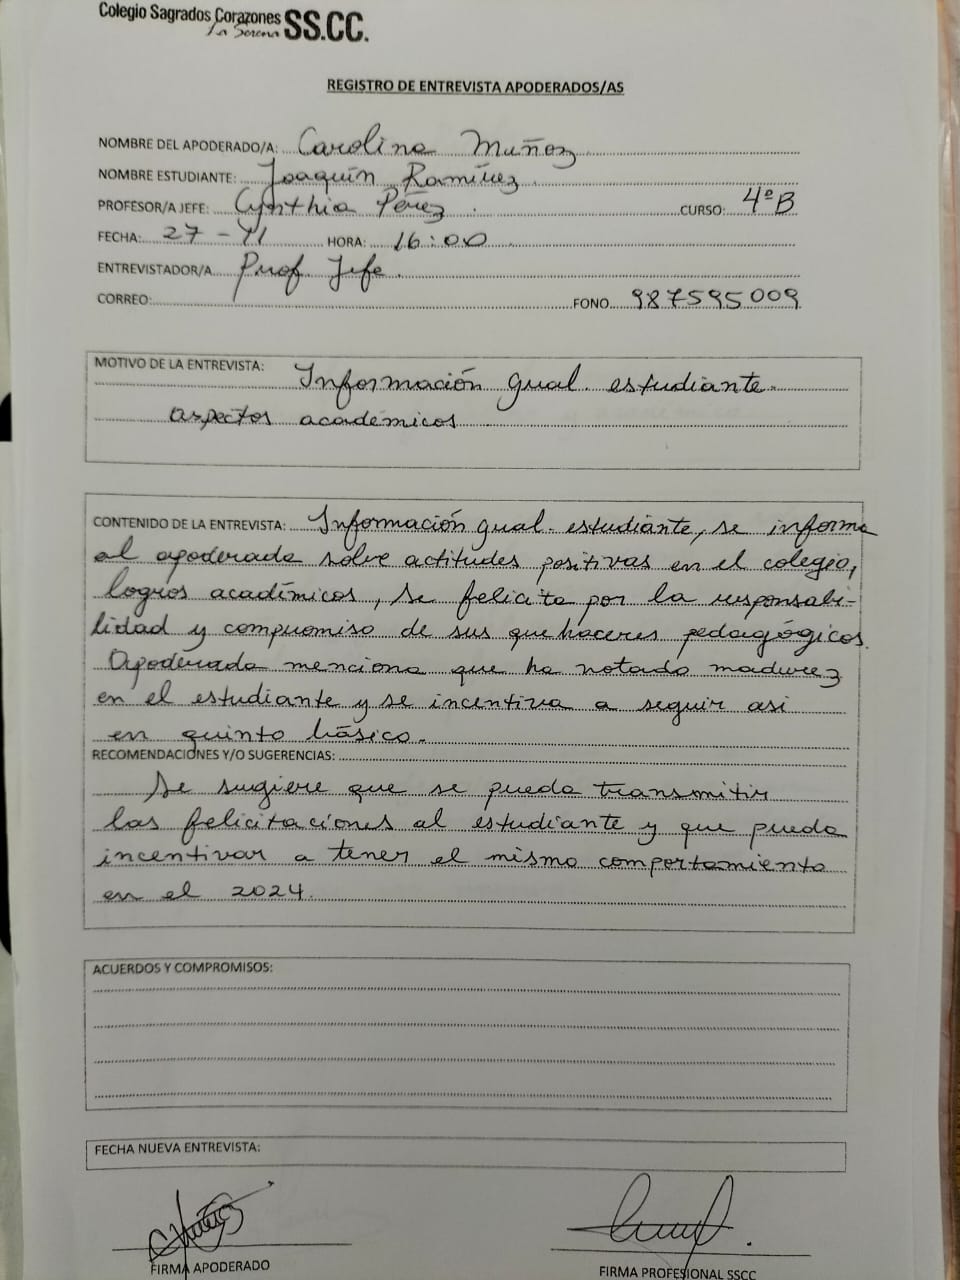 Colegio Sagrados Corazones SS.CC.
La Serena
REGISTRO DE ENTREVISTA APODERADOS/AS
NOMBRE DEL APODERADO/A: Carolina Muñoz
NOMBRE ESTUDIANTE: Joaquín Ramírez
PROFESOR/A JEFE: Cynthia Pérez CURSO: 4ºB
FECHA: 27-11 HORA: 16:00
ENTREVISTADOR/A Prof Jefe
CORREO: FONO 987595009
MOTIVO DE LA ENTREVISTA: Información gual. estudiante.
aspectos académicos
CONTENIDO DE LA ENTREVISTA: Información gual. estudiante, se informa
al apoderado sobre actitudes positivas en el colegio,
logros académicos, se felicita por la responsabi-
lidad y compromiso de sus quehaceres pedagógicos.
Apoderada menciona que ha notado madurez
en el estudiante y se incentiva a seguir asi
en quinto básico.
RECOMENDACIONES Y/O SUGERENCIAS:
Se sugiere que se pueda transmitir
las felicitaciones al estudiante y que pueda
incentivar a tener el mismo comportamiento
en el 2024.
ACUERDOS Y COMPROMISOS:
FECHA NUEVA ENTREVISTA:
FIRMA APODERADO FIRMA PROFESIONAL SSCC